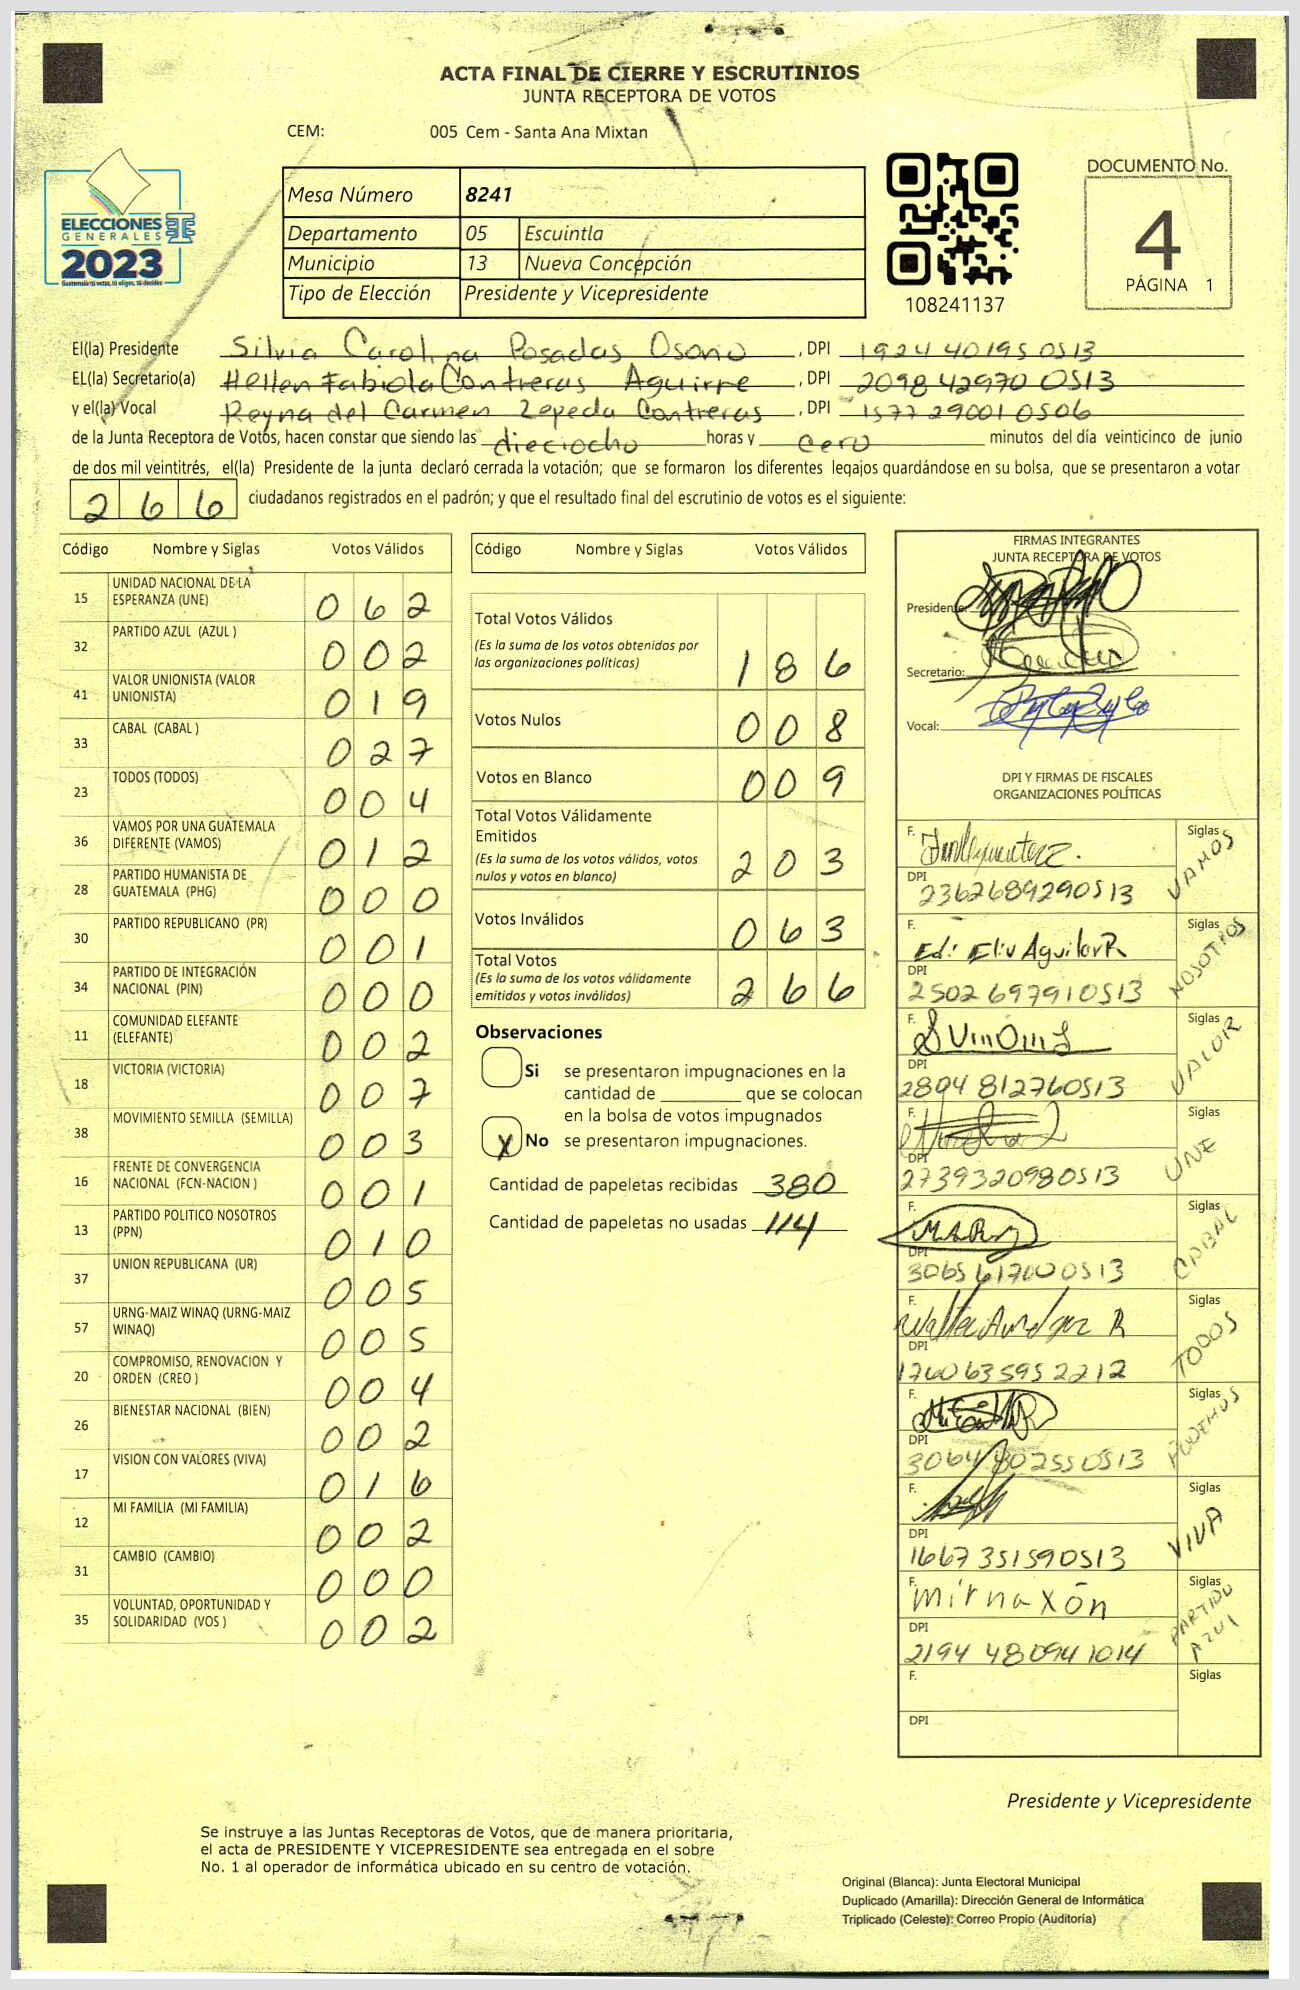 ACTA FINAL DE CIERRE Y ESCRUTINIOS
JUNTA RECEPTORA DE VOTOS
CEM: 005 Cem - Santa Ana Mixtan
ELECCIONES
GENERALES
2023
Mesa Número 8241
Departamento 05 Escuintla
Municipio 13 Nueva Concepción
Tipo de Elección Presidente y Vicepresidente
108241137
DOCUMENTO No.
4
PÁGINA 1
El(la) Presidente Silvia Carolina Posadas Osorio, DPI 1924 40195 0513
EL(la) Secretario(a) Hellen Fabiola Contreras Aguirre, DPI 2098 42970 0513
y el(la) Vocal Reyna del Carmen Zepeda Contreras, DPI 1577 29001 0506
de la Junta Receptora de Votos, hacen constar que siendo las dieciocho horas y cero minutos del día veinticinco de junio
de dos mil veintitrés, el(la) Presidente de la junta declaró cerrada la votación; que se formaron los diferentes legajos guardándose en su bolsa, que se presentaron a votar
266 ciudadanos registrados en el padrón; y que el resultado final del escrutinio de votos es el siguiente:
Código Nombre y Siglas Votos Válidos
15 UNIDAD NACIONAL DE LA ESPERANZA (UNE) 062
32 PARTIDO AZUL (AZUL ) 002
41 VALOR UNIONISTA (VALOR UNIONISTA) 019
33 CABAL (CABAL ) 027
23 TODOS (TODOS) 004
36 VAMOS POR UNA GUATEMALA DIFERENTE (VAMOS) 012
28 PARTIDO HUMANISTA DE GUATEMALA (PHG) 000
30 PARTIDO REPUBLICANO (PR) 001
34 PARTIDO DE INTEGRACIÓN NACIONAL (PIN) 000
11 COMUNIDAD ELEFANTE (ELEFANTE) 002
18 VICTORIA (VICTORIA) 007
38 MOVIMIENTO SEMILLA (SEMILLA) 003
16 FRENTE DE CONVERGENCIA NACIONAL (FCN-NACION ) 001
13 PARTIDO POLITICO NOSOTROS (PPN) 010
37 UNION REPUBLICANA (UR) 005
57 URNG-MAIZ WINAQ (URNG-MAIZ WINAQ) 005
20 COMPROMISO, RENOVACION Y ORDEN (CREO ) 004
26 BIENESTAR NACIONAL (BIEN) 002
17 VISION CON VALORES (VIVA) 016
12 MI FAMILIA (MI FAMILIA) 002
31 CAMBIO (CAMBIO) 000
35 VOLUNTAD, OPORTUNIDAD Y SOLIDARIDAD (VOS ) 002
Código Nombre y Siglas Votos Válidos
Total Votos Válidos
(Es la suma de los votos obtenidos por
las organizaciones políticas) 186
Votos Nulos 008
Votos en Blanco 009
Total Votos Válidamente
Emitidos
(Es la suma de los votos válidos, votos
nulos y votos en blanco) 203
Votos Inválidos 063
Total Votos
(Es la suma de los votos válidamente
emitidos y votos inválidos) 266
Observaciones
Si se presentaron impugnaciones en la
cantidad de ________ que se colocan
en la bolsa de votos impugnados
X No se presentaron impugnaciones.
Cantidad de papeletas recibidas 380
Cantidad de papeletas no usadas 114
FIRMAS INTEGRANTES
JUNTA RECEPTORA DE VOTOS
Presidente:
Secretario:
Vocal:
DPI Y FIRMAS DE FISCALES
ORGANIZACIONES POLÍTICAS
F. Siglas VAMOS
DPI 2362689290513
F. Edi Eliu Aguilar R Siglas NOSOTROS
DPI 2502 697910513
F. Siglas VALOR
DPI 2894 812760513
F. Siglas UNE
DPI 2739320980513
F. Siglas CABAL
DPI 3065 617000513
F. Siglas TODOS
DPI 1760635952212
F. Siglas PODEMOS
DPI 3064 802550513
F. Siglas VIVA
DPI 1667 351590513
F. Mirna Xón Siglas PARTIDO AZUL
DPI 2194 48094 1014
F. Siglas
DPI
Presidente y Vicepresidente
Se instruye a las Juntas Receptoras de Votos, que de manera prioritaria,
el acta de PRESIDENTE Y VICEPRESIDENTE sea entregada en el sobre
No. 1 al operador de informática ubicado en su centro de votación.
Original (Blanca): Junta Electoral Municipal
Duplicado (Amarilla): Dirección General de Informática
Triplicado (Celeste): Correo Propio (Auditoría)